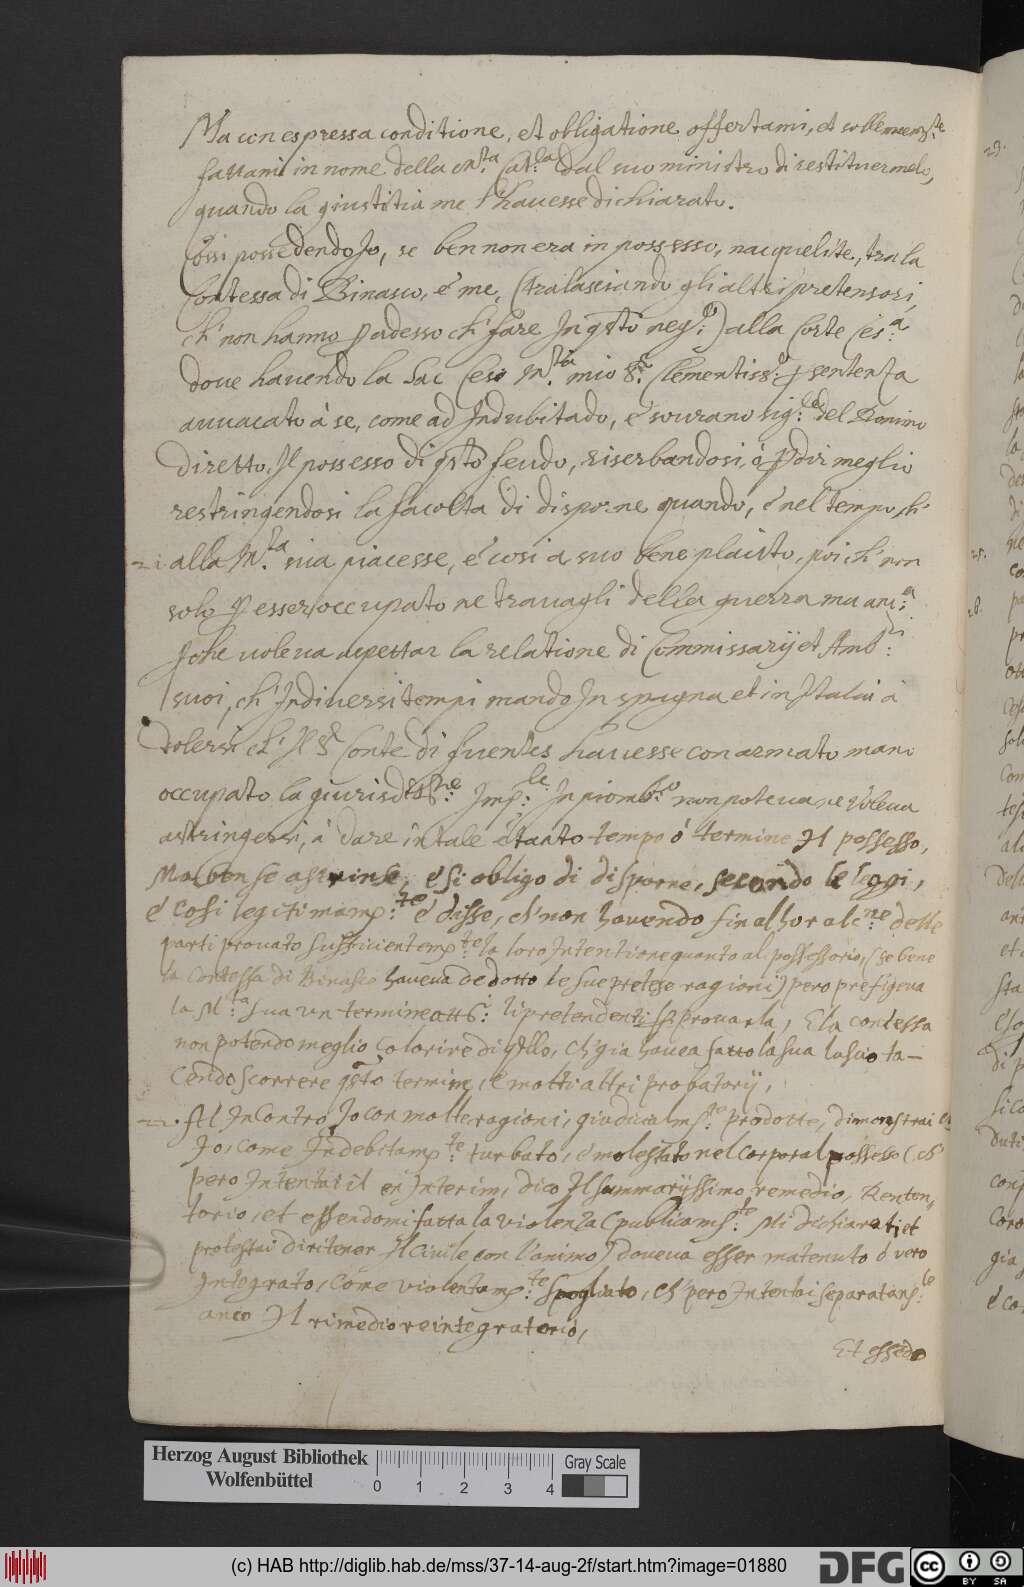 Ma con espressa conditione, et obligatione offertami, et sollennem:te
fattami in nome della M.ta Cat:ca dal suo ministro di restituermelo,
quando la giustitia me l'havesse dichiarato.
Cossi possedendo Io, se ben non era in possesso, nacque lite, tra la
Contessa di Binasco, e' me, (tralasciando gli altri pretensori,
ch' non hanno p adesso ch' fare In qsto neg:o) alla Corte Ces:a
doue hauendo la Sac Ces: M.ta mio S.r Clementiss:o p sententza
auuacato à se, come ad Indubitado, e' sourano sig:re del Dominio
diretto, Il possesso di qsto feudo, riserbandosi, ò p dir meglio
restringendosi la facolta di disporne quando, e' nel tempo, ch'
21 alla M.ta sua piacesse, e' cosi a suo beneplacito, poi ch' non
solo p esser occupato ne trauagli della guerra ma anc:a
p che uoleua aspettar la relatione di Commissarij et Amb:ri
suoi, ch' In diuersi tempi mando In spagna et in Italia à
dolersi ch' Il S.r Conte di fuentes hauesse con armato mano
occupato la giurisdtt:ne Imp:le In piomb:no non poteua, ne voleua
astringersi, à dare in tale e tanto tempo ò termine Il possesso,
Ma ben se astrinse, e' si obligo di disporne, secondo le leggi,
e' cossi legitimamen:te e' disse, ch' non hauendo fin alhor alc:ne delle
parti prouato sufficientem:te la loro Intentione quanto al possessorio, (se bene
la Contessa di Binasco haueua dedotto le sue pretese ragioni) pero prefigeua
la M:ta sua vn termine à tti: li pretendenti p prouarla, E la contessa
non potendo meglio colorire di qllo, ch' gia hauea fatto la sua lascio ta-
cendo scorrere qsto termine, e' molti altri probatorij,
22. Al Incontro Io con molte ragioni, giudicialm:te prodotte, dimonstrai
Io, come Indebitam:te turbato, e' molestato nel corporal possesso (ch'
pero Intentai il en Interim, dico Il summarijssimo remedio, Renten-
torio, et essendomi fatta la violenza (publicam:te Mi dichiarai, et
protestai di ritener Il Ciuile con l'animo) doueua esser matenuto ò vero
Integrato, come violentam:te spogliato, ch' pero Intentai separatam:te
anco Il rimedio reintegratorio,
Et essedo
29.
25.
28.
Herzog August Bibliothek
Wolfenbüttel
0 1 2 3 4
Gray Scale
(c) HAB http://diglib.hab.de/mss/37-14-aug-2f/start.htm?image=01880
DFG
cc BY SA